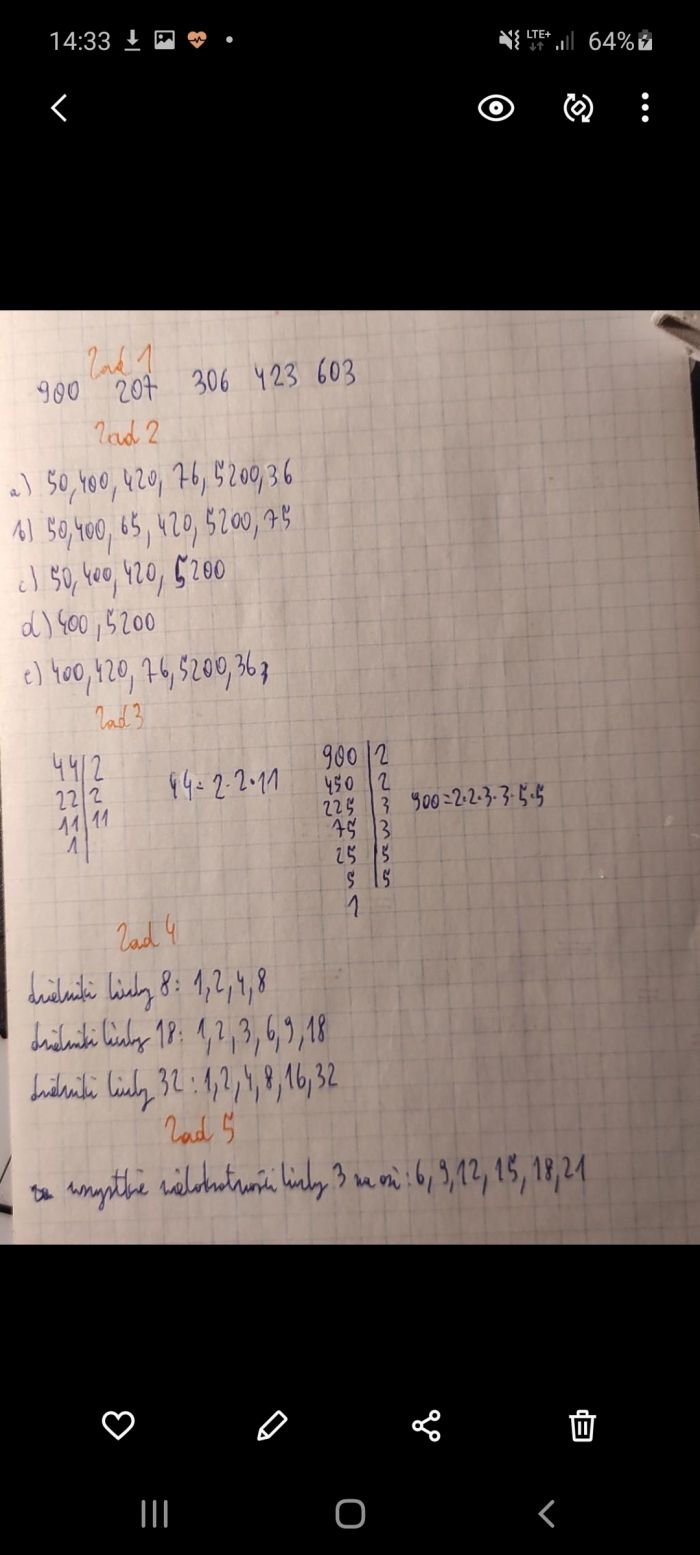 14:33
LTE+ 64%
Zad 1
900 207 306 423 603
Zad 2
a) 50,400,420, 76, 5200,36
b) 50,400, 65, 420, 5200, 75
c) 50,400,420, 5200
d) 400, 5200
e) 400,420, 76, 5200, 36
Zad 3
44|2
22|2
11|11
1|
44= 2·2·11
900|2
450|2
225|3
75|3
25|5
5|5
1
900=2·2·3·3·5·5
Zad 4
dzielniki liczby 8: 1,2,4,8
dzielniki liczby 18: 1,2,3,6,9,18
dzielniki liczby 32: 1,2,4,8,16,32
Zad 5
wszystkie wielokrotności liczby 3 na osi: 6, 9, 12, 15, 18, 21